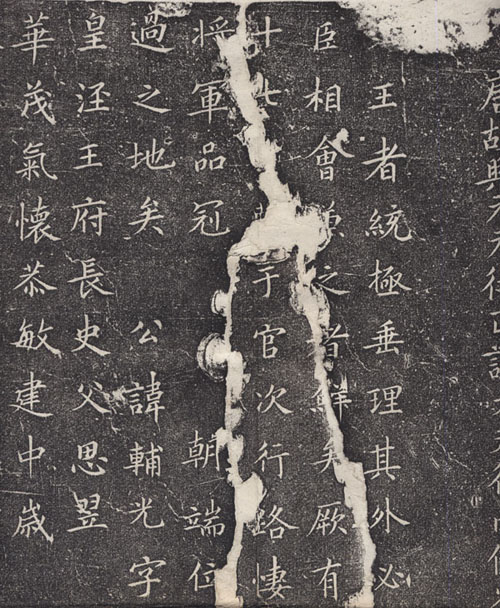 王者統極垂理其外必
臣相會兼之者鮮矣厥有
十七于官次行路悽
將軍品冠 朝端位
過之地矣 公諱輔光字
皇涇王府長史父思翌
華茂氣懷恭敏建中歲